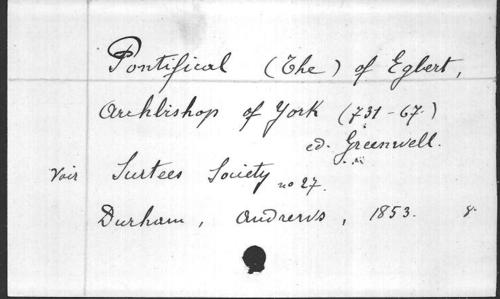 Pontifical (The) of Egbert,
Archbishop of York (731-67.)
ed. Greenwell.
Voir Surtees Society no 27.
Durham, Andrews, 1853. 8